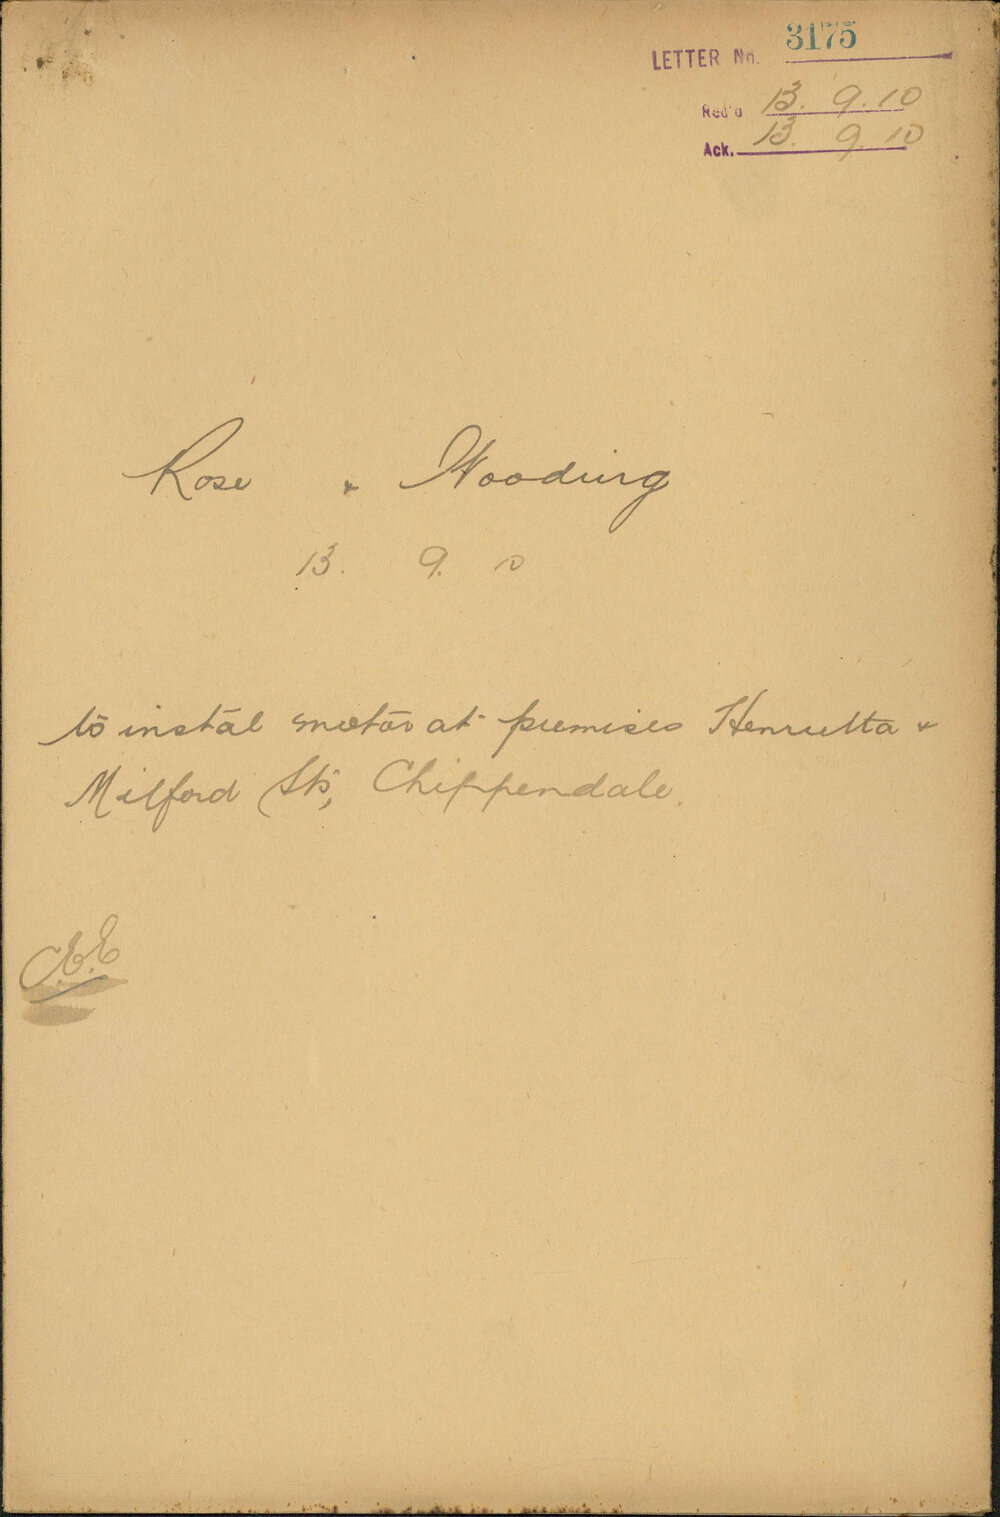 LETTER No. 3175
Rec'd 13. 9. 10
Ack. 13. 9. 10
Rose & Wooding
13. 9. 10
to instal motor at premises Henrietta &
Milford Sts, Chippendale.
C.E.E